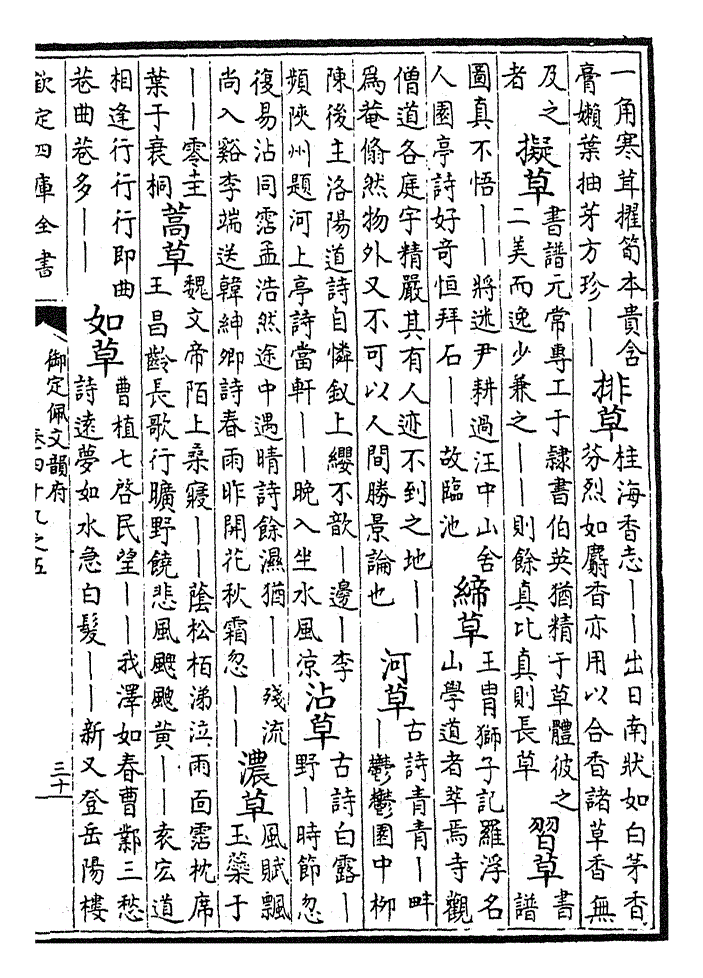 一角寒茸擢筍本貴含
膏嬾葉抽芽方珍——
排草
桂海香志——出日南狀如白茅香
芬烈如麝香亦用以合香諸草香無
及之
者
擬草
書譜元常專工于隸書伯英猶精于草體彼之
二美而逸少兼之——則餘真比真則長草
習草
書
譜
圖真不悟——將迷尹耕過汪中山舍
人園亭詩好奇恒拜石——故臨池
締草
王胄獅子記羅浮名
山學道者萃焉寺觀
僧道各庭宇精嚴其有人迹不到之地——
為菴翛然物外又不可以人間勝景論也
河草
古詩青青—畔
—鬱鬱園中柳
陳後主洛陽道詩自憐釵上纓不歆—邊—李
頻陝州題河上亭詩當軒——晚入坐水風凉
沾草
古詩白露—
野—時節忽
復易沾同霑孟浩然途中遇晴詩餘濕猶——殘流
尚入谿李端送韓紳卿詩春雨昨開花秋霜忽——
濃草
風賦飄
玉蘂于
——零圭
葉于衰桐
蒿草
魏文帝陌上桑寢——蔭松柏涕泣雨面霑枕席
王昌齡長歌行曠野饒悲風颼颼黄——袁宏道
相逢行行行即曲
巷曲巷多——
如草
曹植七啓民望——我澤如春曹鄴三愁
詩遠夢如水急白髮——新又登岳陽樓
欽定四庫全書
御定佩文韻府
卷四十九之五
三十